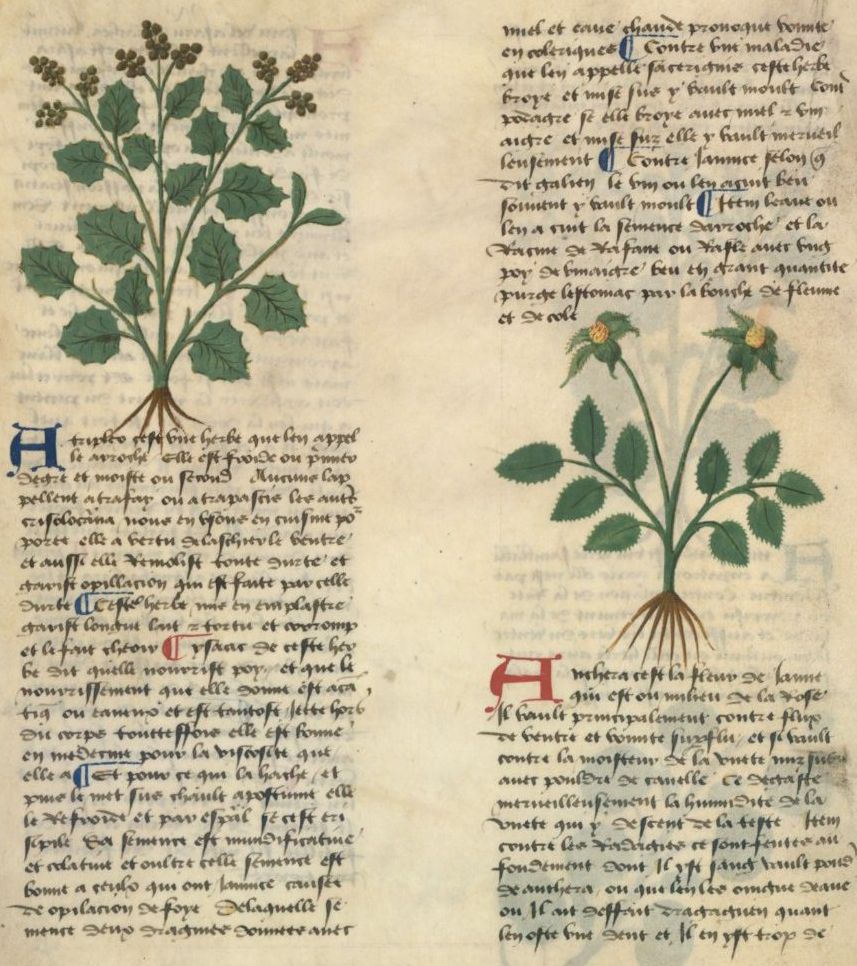 Atriplex cest une herbe que len appel
le arroche Elle est froide ou premier
degre et moiste ou second Aucuns lap
pellent atrafax ou atrapascis les autres
crisolocana nous en usons en cuisine por
poree elle a vertu delaschier le ventre
et aussi elle Remolist toute durte et
garist opillacion qui est faite par celle
durte ¶ Ceste herbe mise en emplastre
garist longue lait et tortu et corromp
et le fait cheoir ¶ ysaac de ceste her
be dit quelle nourrist poy et que le
nourrissement que elle donne est aqua
tiq ou eaueux et est tantost Jecte hors
du corps touteffois elle est bonne
en medecine pour la viscosite que
elle a ¶ Et pour ce qui la hache et
puis le met sus chault apostume elle
le Refroide et par espal se cest eri
sipile Sa semence est mundificative
et colative et oultre celle semence est
bonne a ceulx qui ont Jaunice causee
de opilacion de foye Delaquelle se
mence deux dragmes donnees avec
miel et eaue chaude provoque vomite
en coleriques ¶ Contre une maladie
que len appelle sacerignie ceste herbe
broye et mise sus y vault moult Cont
podagre se elle broye avec miel et vin
aigre et mise sur elle y vault merveil
leusement ¶ Contre Jaunice selon q
dit galien le vin ou len acuit beu
souvent y vault moult ¶ Item leaue ou
len a cuit la semence darroche et la
Racine de Rafane ou Rafle avec ung
poy de vinaigre beu en grant quantite
purge lestomac par la bouche de fleume
et de cole
Anthera cest la fleur de Jaune
qui est ou milieu de la Rose
Il vault principalement contre flux
de ventre et vomite suplu et si vault
contre la moisteur de la vuete mis sus
avec pouldre de canelle Ce degaste
merveilleusement la humidite de la
vuete qui y descent de la teste Item
contre les Radagies ce sont fentes au
fondement dont Il yst sang vault poud
de anthera ou que len les oingne deaue
ou Il ait deffait dragaguen quant
len oste une dent et Il en yst trop de